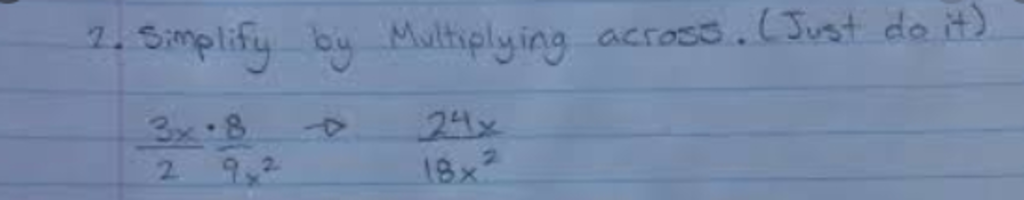 2. Simplify by Multiplying across. (Just do it)
3x/2 · 8/9x² → 24x/18x²